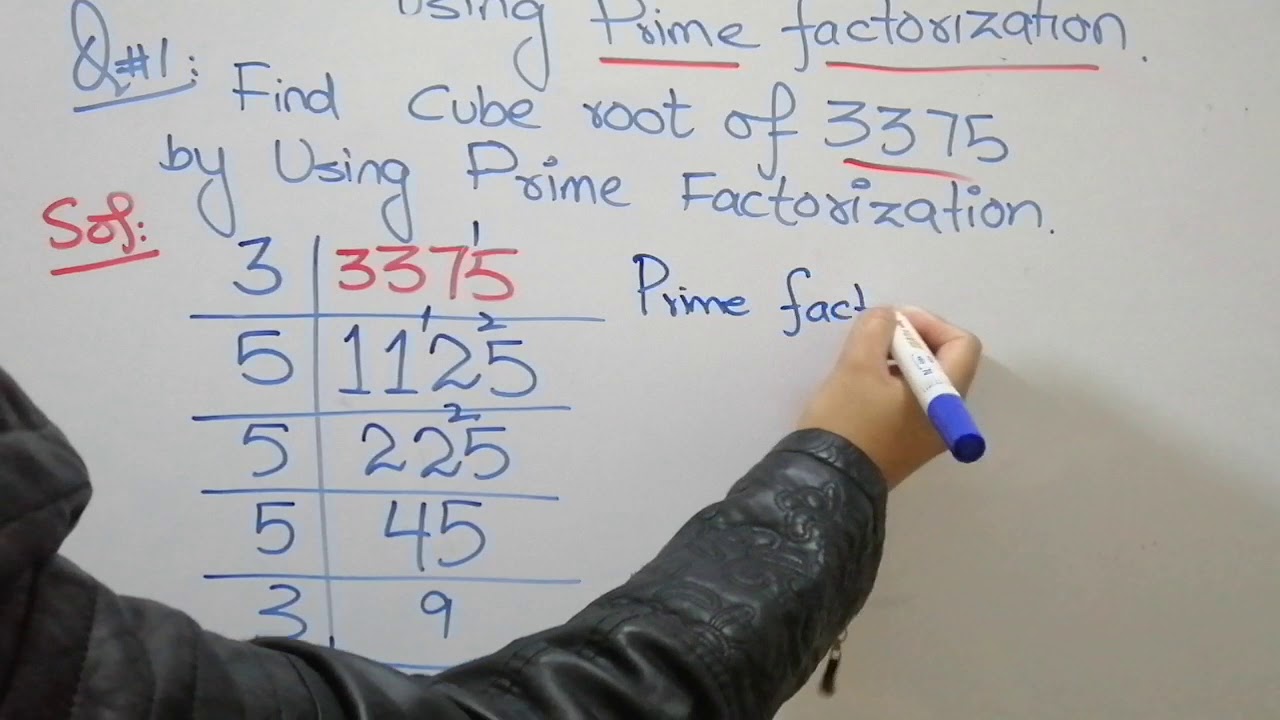 Using Prime factorization.
Q#1: Find Cube root of 3375
by Using Prime Factorization.
Sol:
3 | 3375
5 | 1125
5 | 225
5 | 45
3 | 9
Prime fact